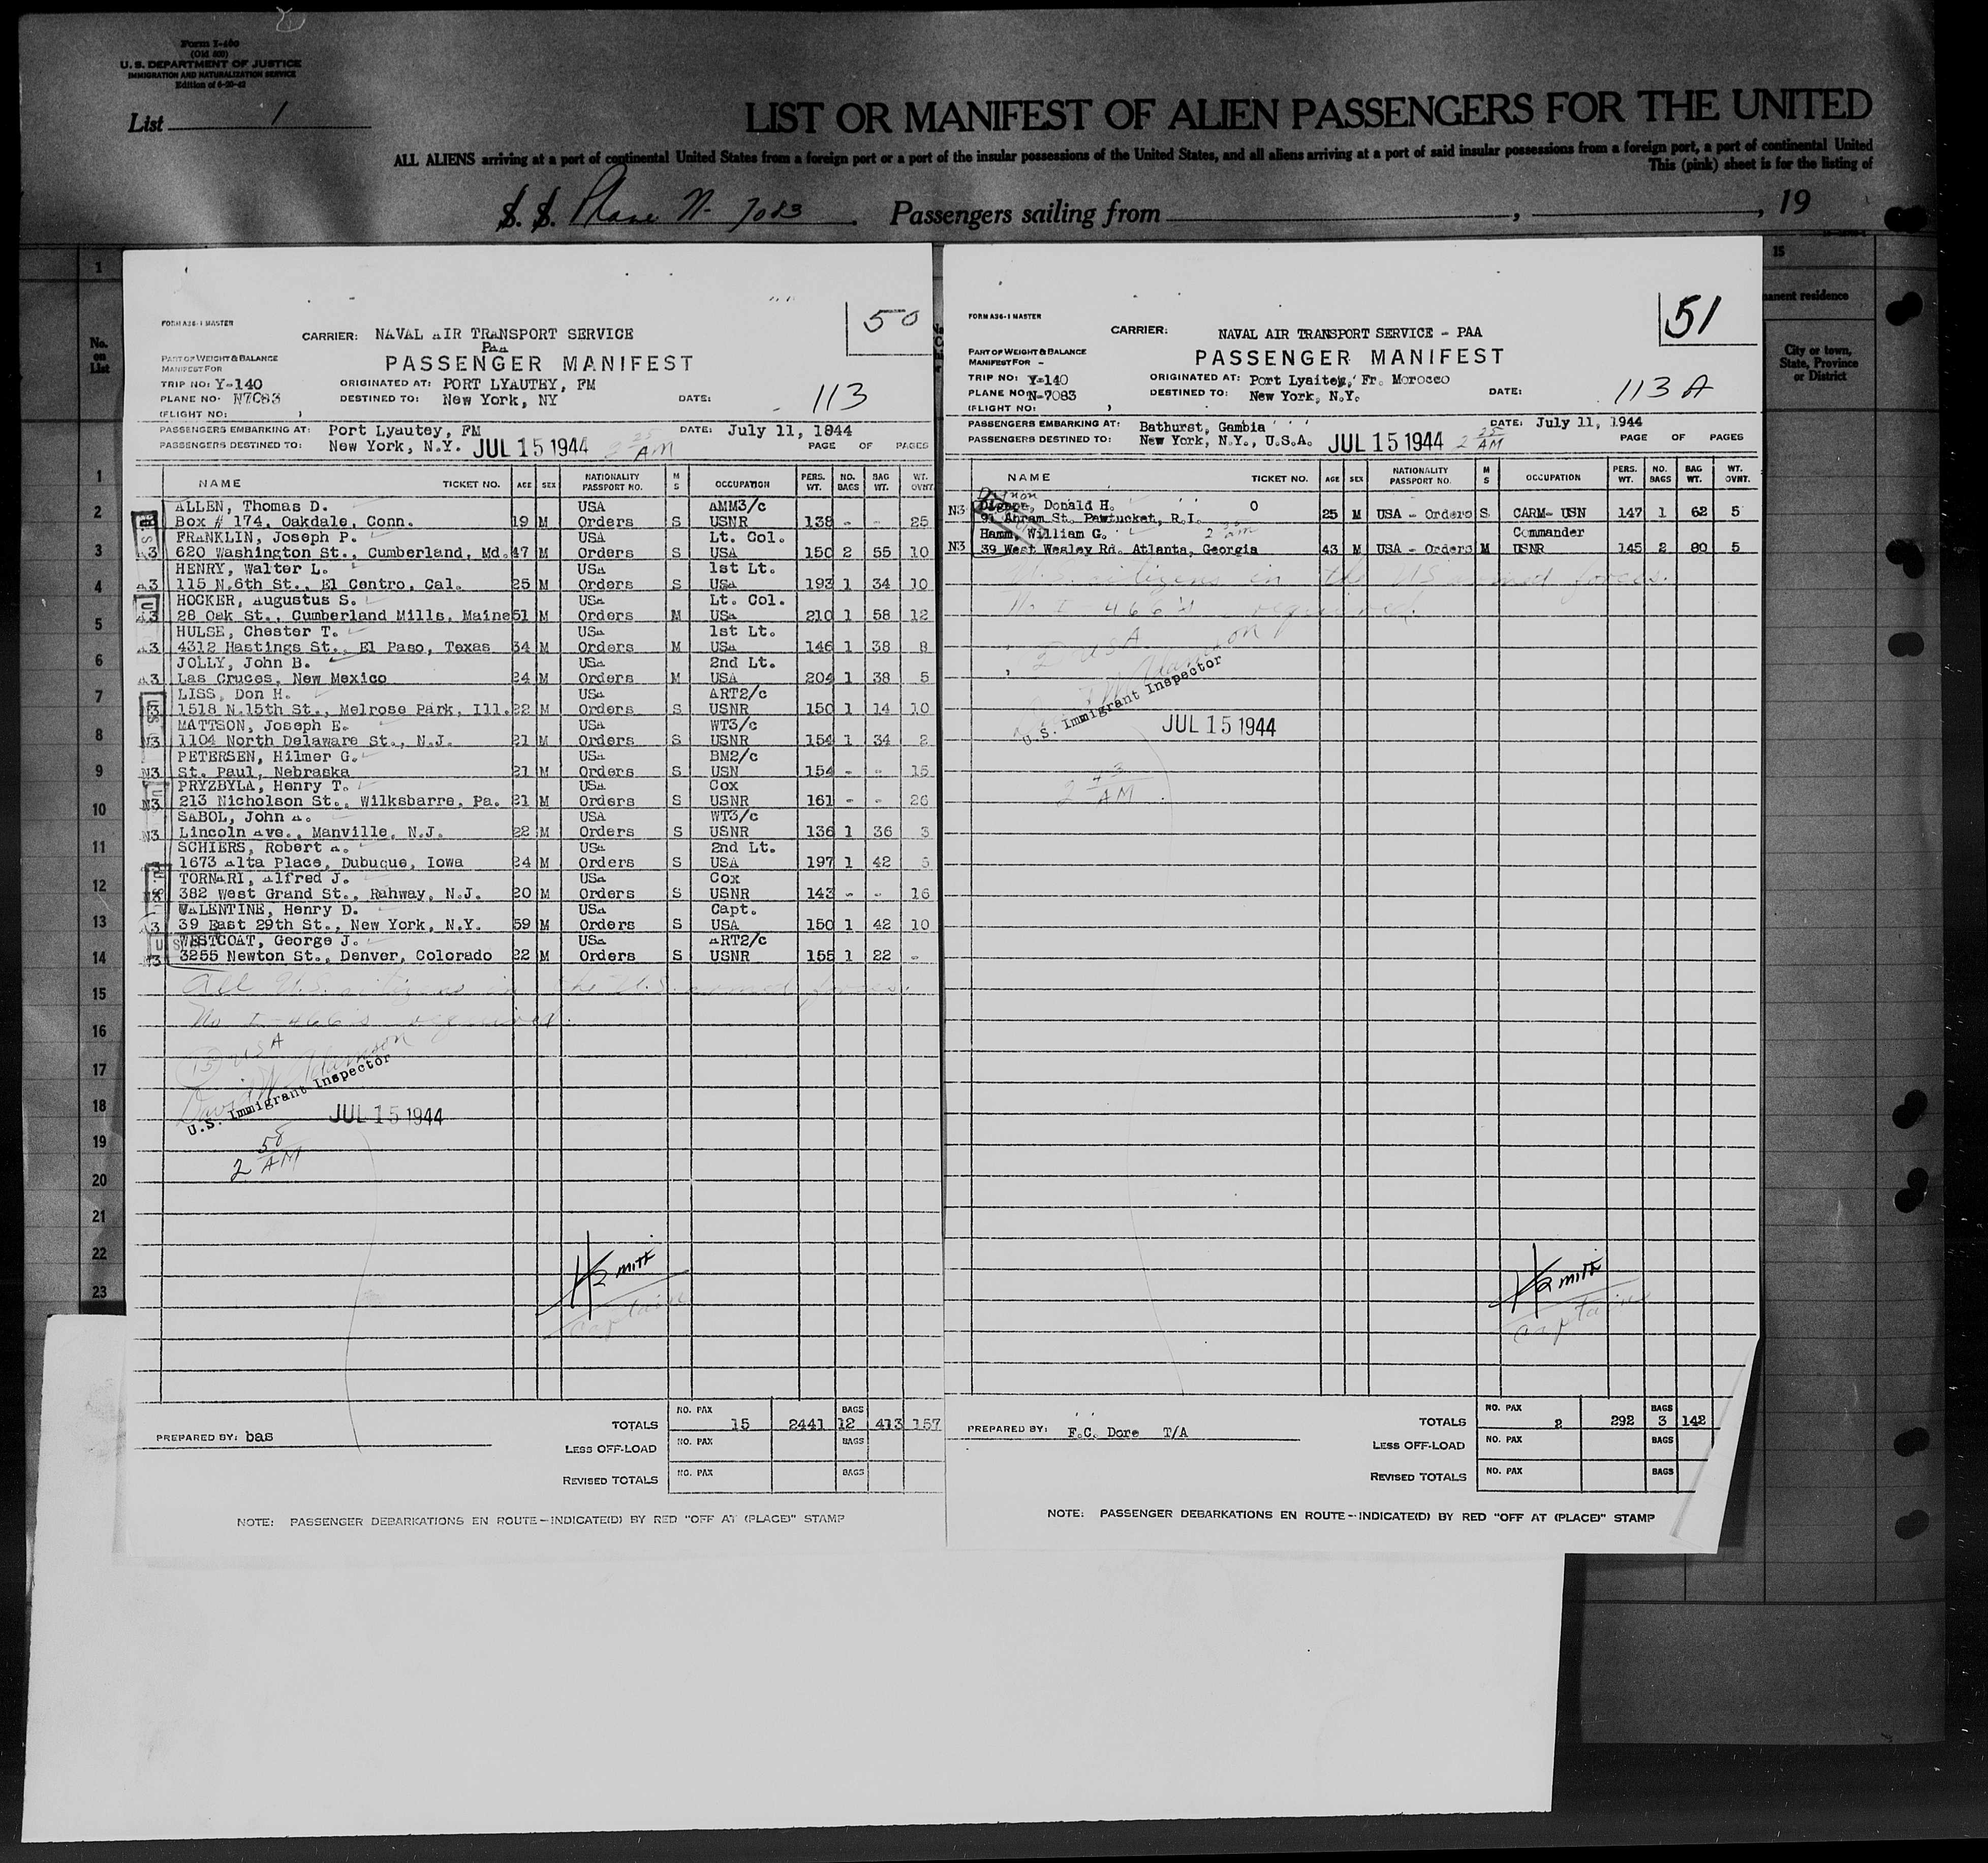 Form I-460
(Old 500)
U. S. DEPARTMENT OF JUSTICE
IMMIGRATION AND NATURALIZATION SERVICE
Edition of 6-20-42
List 1
LIST OR MANIFEST OF ALIEN PASSENGERS FOR THE UNITED
ALL ALIENS arriving at a port of continental United States from a foreign port or a port of the insular possessions of the United States, and all aliens arriving at a port of said insular possessions from a foreign port, a port of continental United
This (pink) sheet is for the listing of
S. S. Plane N- 7083 Passengers sailing from , , 19
FORM A36-1 MASTER
50
CARRIER: NAVAL AIR TRANSPORT SERVICE
PAA
PART OF WEIGHT & BALANCE
MANIFEST FOR
PASSENGER MANIFEST
TRIP NO: Y-140 ORIGINATED AT: PORT LYAUTEY, FM
PLANE NO. N7083 DESTINED TO: New York, NY DATE: 113
(FLIGHT NO: )
PASSENGERS EMBARKING AT: Port Lyautey, FM DATE: July 11, 1844
PASSENGERS DESTINED TO: New York, N.Y. JUL 15 1944 2 25 AM PAGE OF PAGES
NAME TICKET NO. AGE SEX NATIONALITY PASSPORT NO. M S OCCUPATION PERS. WT. NO. BAGS BAG WT. WT. OVNT.
ALLEN, Thomas D. USA AMM3/c
Box # 174, Oakdale, Conn. 19 M Orders S USNR 138 - - 25
FRANKLIN, Joseph P. USA Lt. Col.
A3 620 Washington St., Cumberland, Md. 47 M Orders S USA 150 2 55 10
HENRY, Walter L. USA 1st Lt.
A3 115 N.6th St., El Centro, Cal. 25 M Orders S USA 193 1 34 10
HOCKER, Augustus S. USA Lt. Col.
A3 28 Oak St., Cumberland Mills, Maine 51 M Orders M USA 210 1 58 12
HULSE, Chester T. USA 1st Lt.
A3 4312 Hastings St., El Paso, Texas 34 M Orders M USA 146 1 38 8
JOLLY, John B. USA 2nd Lt.
A3 Las Cruces, New Mexico 24 M Orders M USA 204 1 38 5
LISS, Don H. USA ART2/c
N3 1518 N.15th St., Melrose Park, Ill. 22 M Orders S USNR 150 1 14 10
MATTSON, Joseph E. USA WT3/c
N3 1104 North Delaware St., N.J. 21 M Orders S USNR 154 1 34 2
PETERSEN, Hilmer G. USA BM2/c
N3 St. Paul, Nebraska 21 M Orders S USN 154 - - 15
PRYZBYLA, Henry T. USA Cox
N3 213 Nicholson St., Wilksbarre, Pa. 21 M Orders S USNR 161 - - 26
SABOL, John A. USA WT3/c
N3 Lincoln Ave., Manville, N.J. 22 M Orders S USNR 136 1 36 3
SCHIERS, Robert A. USA 2nd Lt.
1673 Alta Place, Dubuque, Iowa 24 M Orders S USA 197 1 42 5
TORNARI, Alfred J. USA Cox
N3 382 West Grand St., Rahway, N.J. 20 M Orders S USNR 143 - - 16
VALENTINE, Henry D. USA Capt.
A3 39 East 29th St., New York, N.Y. 59 M Orders S USA 150 1 42 10
WESTCOAT, George J. USA ART2/c
N3 3255 Newton St., Denver, Colorado 22 M Orders S USNR 155 1 22 -
All U.S. citizens in the U.S. armed forces.
No I-466's required.
15 USA
David W. Adamson
U.S. Immigrant Inspector
JUL 15 1944
2 50 AM
Smith
Captain
TOTALS NO. PAX 15 2441 BAGS 12 413 157
PREPARED BY: bas
LESS OFF-LOAD NO. PAX BAGS
REVISED TOTALS NO. PAX BAGS
NOTE: PASSENGER DEBARKATIONS EN ROUTE - INDICATE(D) BY RED "OFF AT (PLACE)" STAMP
FORM A36-1 MASTER
51
CARRIER: NAVAL AIR TRANSPORT SERVICE - PAA
PART OF WEIGHT & BALANCE
MANIFEST FOR -
PASSENGER MANIFEST
TRIP NO: Y-140 ORIGINATED AT: Port Lyaitey, Fr. Morocco
PLANE NO: N-7083 DESTINED TO: New York, N.Y. DATE: 113 A
(FLIGHT NO: )
PASSENGERS EMBARKING AT: Bathurst, Gambia DATE: July 11, 1944
PASSENGERS DESTINED TO: New York, N.Y., U.S.A. JUL 15 1944 2 25 AM PAGE OF PAGES
NAME TICKET NO. AGE SEX NATIONALITY PASSPORT NO. M S OCCUPATION PERS. WT. NO. BAGS BAG WT. WT. OVNT.
Dignon
Donald H. 0
N3 91 Abram St. Pawtucket, R.I. 25 M USA - Orders S CARM- USN 147 1 62 5
Hamm, William G. Commander
N3 39 West Wesley Rd. Atlanta, Georgia 43 M USA - Orders M USNR 145 2 80 5
U.S. citizens in the US armed forces.
No I-466's required.
2 USA
David W. Adamson
U.S. Immigrant Inspector
JUL 15 1944
2 43 AM
Smith
Captain
TOTALS NO. PAX 2 292 BAGS 3 142
PREPARED BY: F.C. Dore T/A
LESS OFF-LOAD NO. PAX BAGS
REVISED TOTALS NO. PAX BAGS
NOTE: PASSENGER DEBARKATIONS EN ROUTE - INDICATE(D) BY RED "OFF AT (PLACE)" STAMP
1
No. on List
1
2
3
4
5
6
7
8
9
10
11
12
13
14
15
16
17
18
19
20
21
22
23
15
manent residence
City or town, State, Province or District